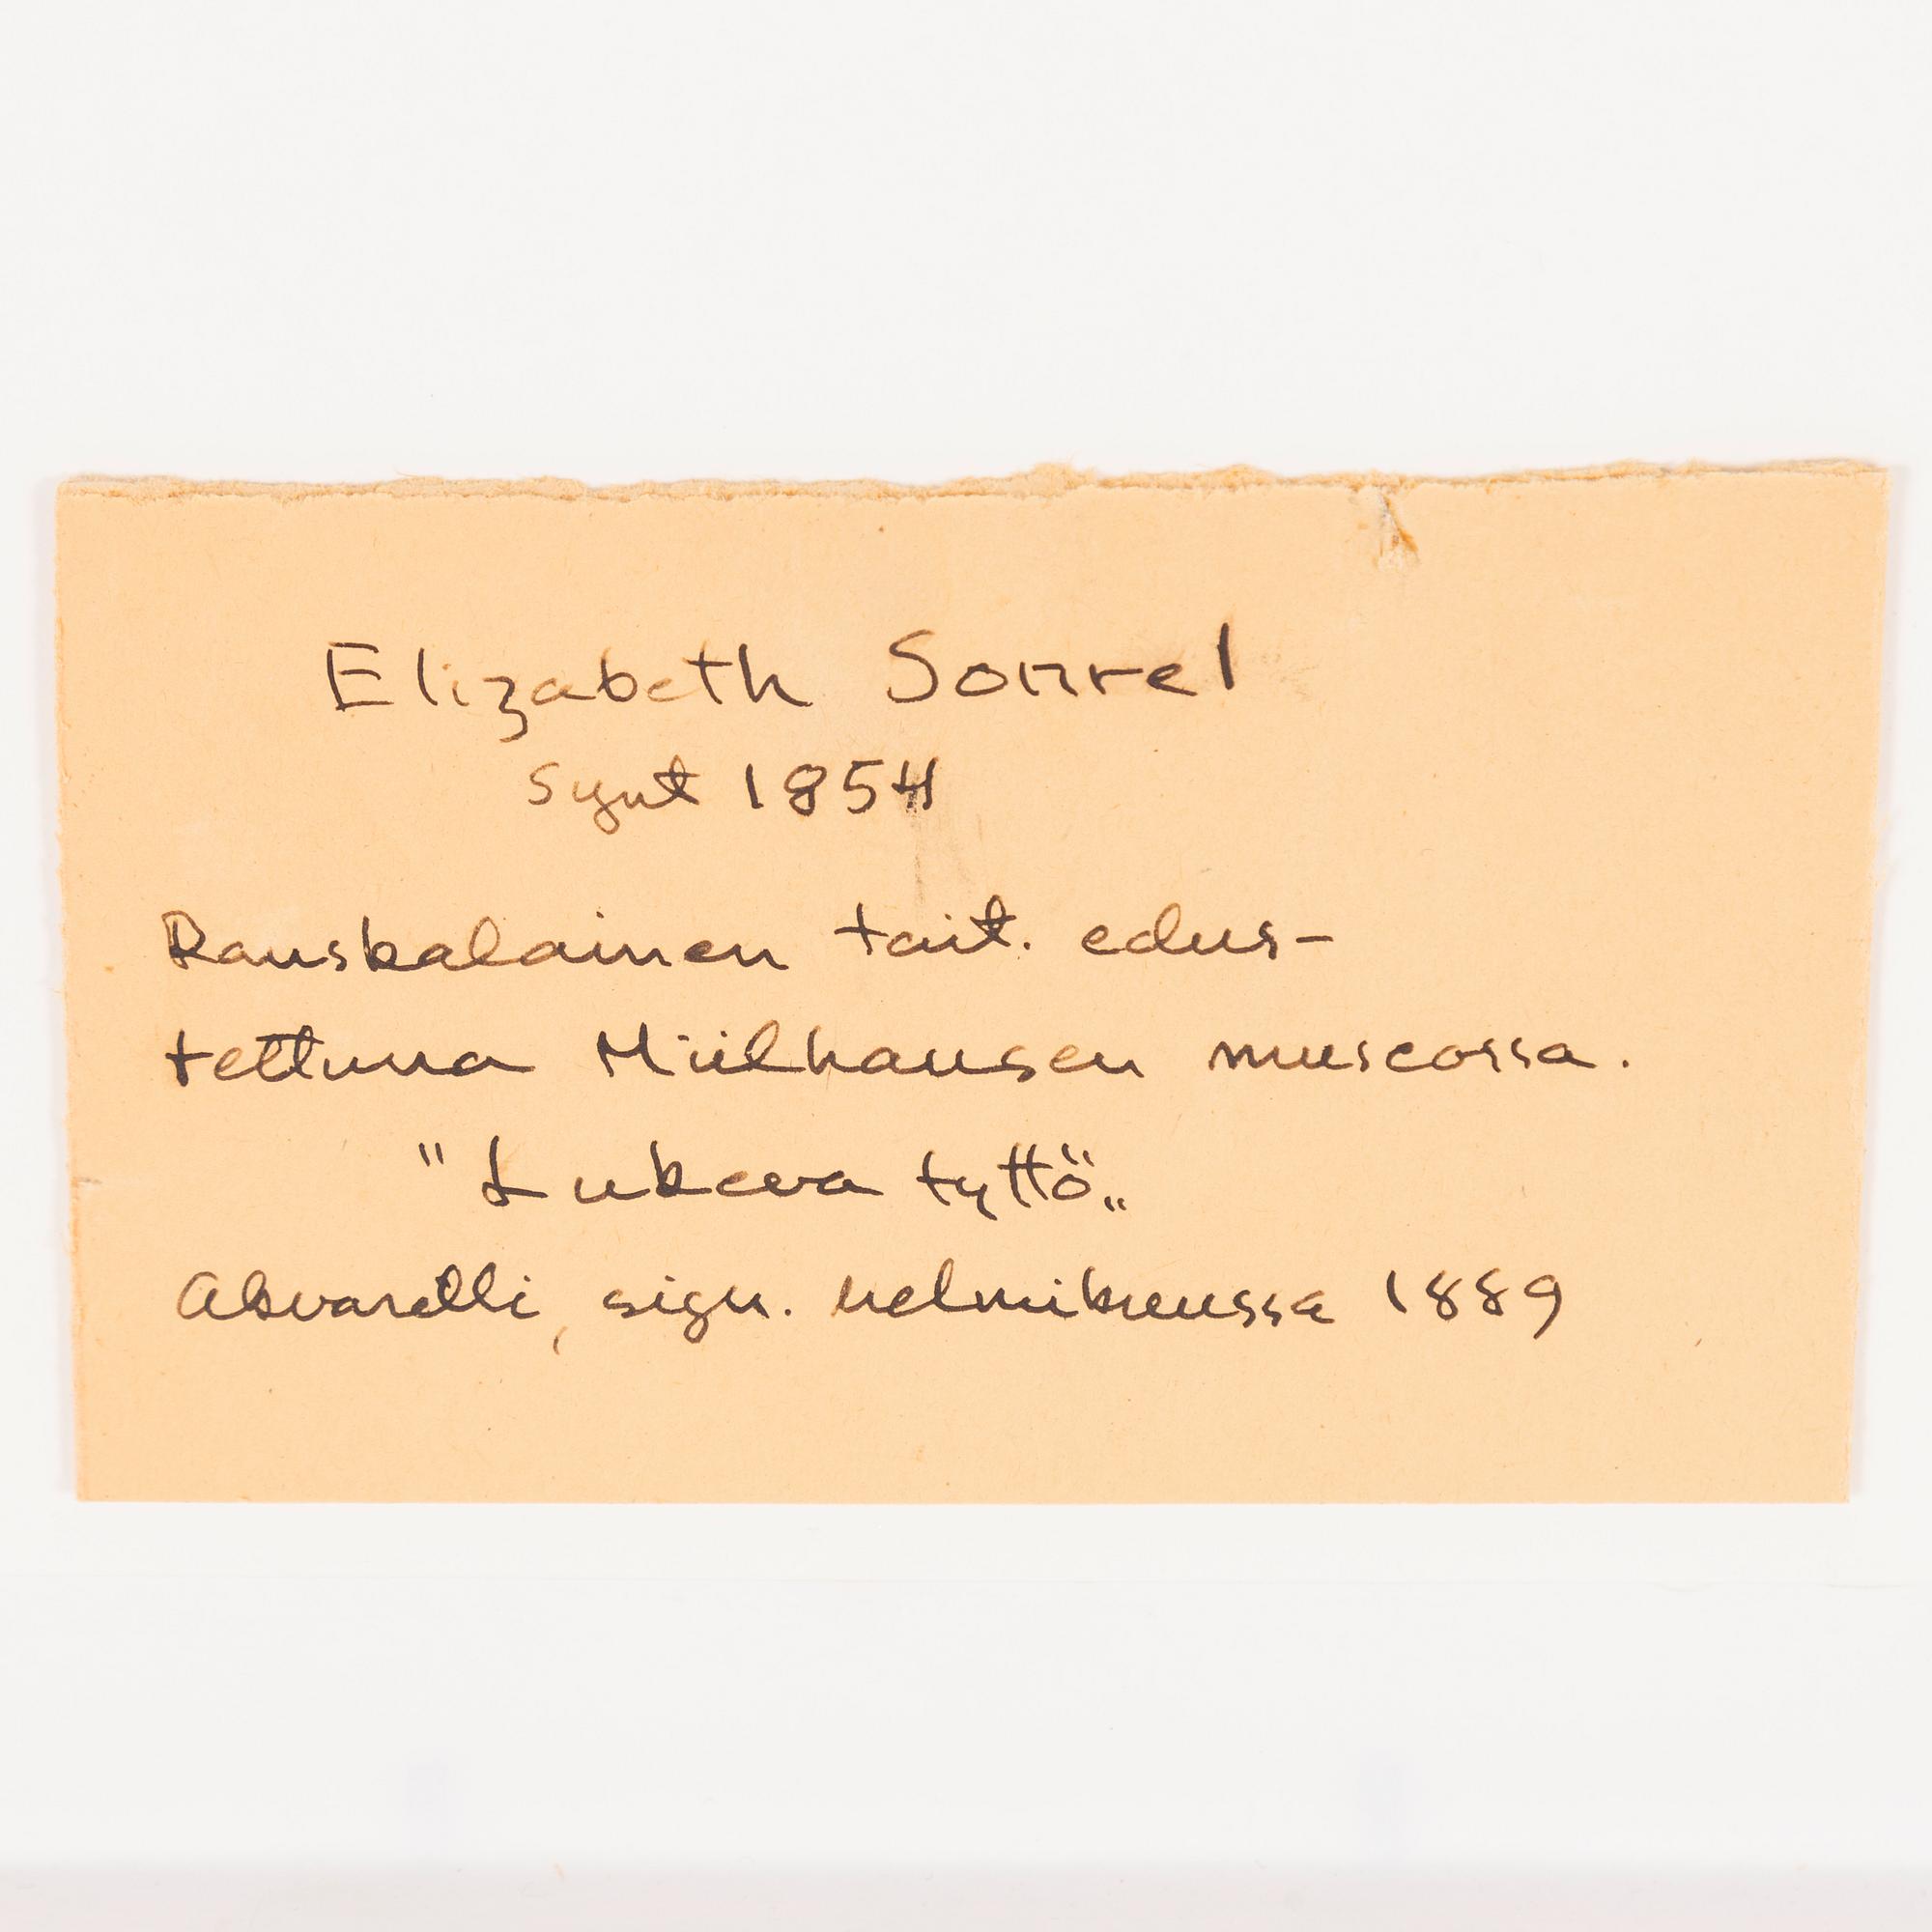 Elizabeth Sonrel
synt 1854
Ranskalainen tait. edus-
tettuna Mülhausen museossa.
"Lukeva tyttö„
Akvarelli, sign. helmikuussa 1889